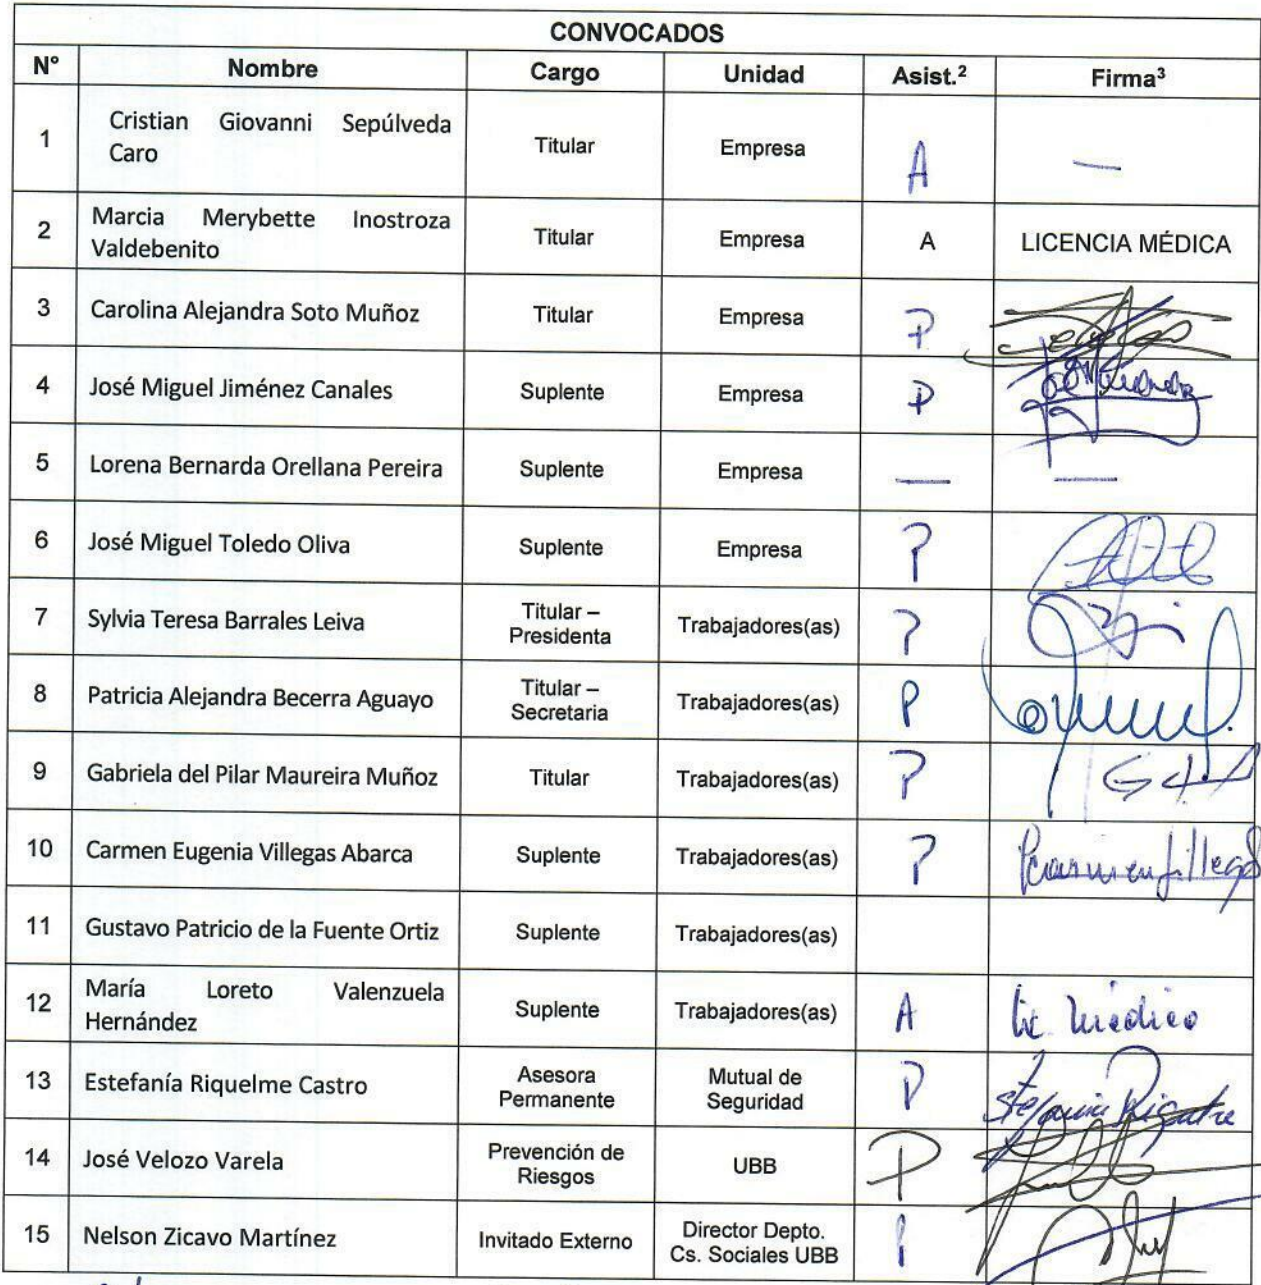 CONVOCADOS
N° Nombre Cargo Unidad Asist.² Firma³
1 Cristian Giovanni Sepúlveda Caro Titular Empresa A —
2 Marcia Merybette Inostroza Valdebenito Titular Empresa A LICENCIA MÉDICA
3 Carolina Alejandra Soto Muñoz Titular Empresa P
4 José Miguel Jiménez Canales Suplente Empresa P
5 Lorena Bernarda Orellana Pereira Suplente Empresa — —
6 José Miguel Toledo Oliva Suplente Empresa P
7 Sylvia Teresa Barrales Leiva Titular – Presidenta Trabajadores(as) P
8 Patricia Alejandra Becerra Aguayo Titular – Secretaria Trabajadores(as) P
9 Gabriela del Pilar Maureira Muñoz Titular Trabajadores(as) P
10 Carmen Eugenia Villegas Abarca Suplente Trabajadores(as) P
11 Gustavo Patricio de la Fuente Ortiz Suplente Trabajadores(as)
12 María Loreto Valenzuela Hernández Suplente Trabajadores(as) A Lic. Médica
13 Estefanía Riquelme Castro Asesora Permanente Mutual de Seguridad P
14 José Velozo Varela Prevención de Riesgos UBB P
15 Nelson Zicavo Martínez Invitado Externo Director Depto. Cs. Sociales UBB P